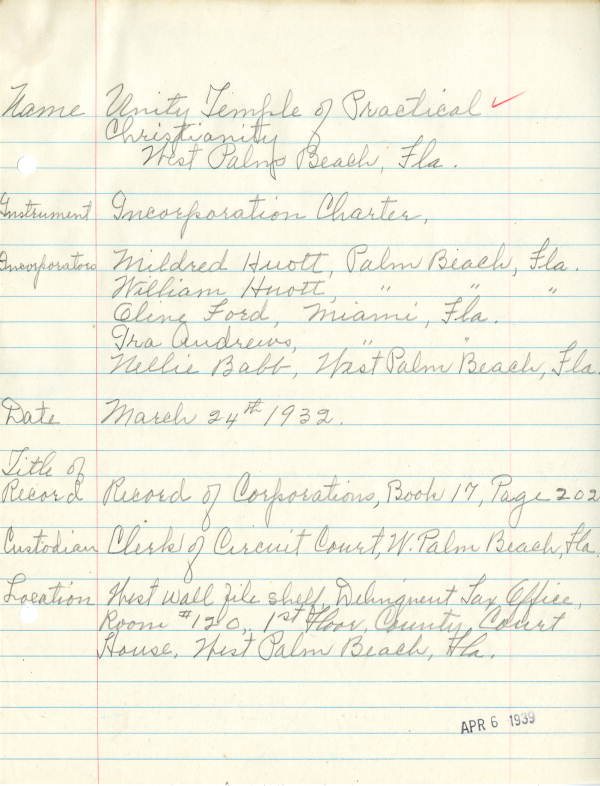 Name Unity Temple of Practical ✓
Christianity
West Palm Beach, Fla.
Instrument Incorporation Charter,
Incorporators Mildred Huott, Palm Beach, Fla.
William Huott, " " "
Cline Ford, Miami, Fla.
Ira Andrews, " "
Nellie Babb, West Palm Beach, Fla.
Date March 24th 1932.
Title of
Record Record of Corporations, Book 17, Page 202
Custodian Clerk of Circuit Court, W. Palm Beach, Fla.
Location West wall file shelf, Delinquent Tax Office,
Room #120, 1st Floor, County Court
House, West Palm Beach, Fla.
APR 6 1939